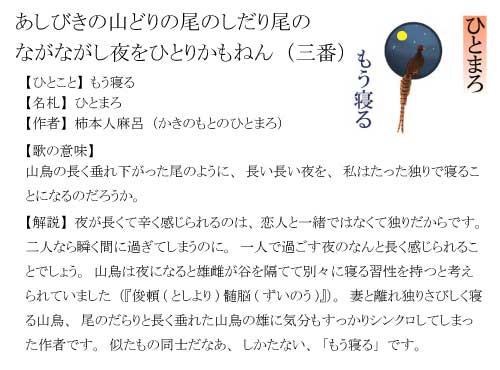 あしびきの山どりの尾のしだり尾の
ながながし夜をひとりかもねん（三番）
【ひとこと】もう寝る
【名札】ひとまろ
【作者】柿本人麻呂（かきのもとのひとまろ）
【歌の意味】
山鳥の長く垂れ下がった尾のように、長い長い夜を、私はたった独りで寝るこ
とになるのだろうか。
【解説】夜が長くて辛く感じられるのは、恋人と一緒ではなくて独りだからです。
二人なら瞬く間に過ぎてしまうのに。一人で過ごす夜のなんと長く感じられるこ
とでしょう。山鳥は夜になると雄雌が谷を隔てて別々に寝る習性を持つと考え
られていました（『俊頼(としより)髄脳(ずいのう)』）。妻と離れ独りさびしく寝
る山鳥、尾のだらりと長く垂れた山鳥の雄に気分もすっかりシンクロしてしまっ
た作者です。似たもの同士だなあ、しかたない、「もう寝る」です。
ひとまろ
もう寝る